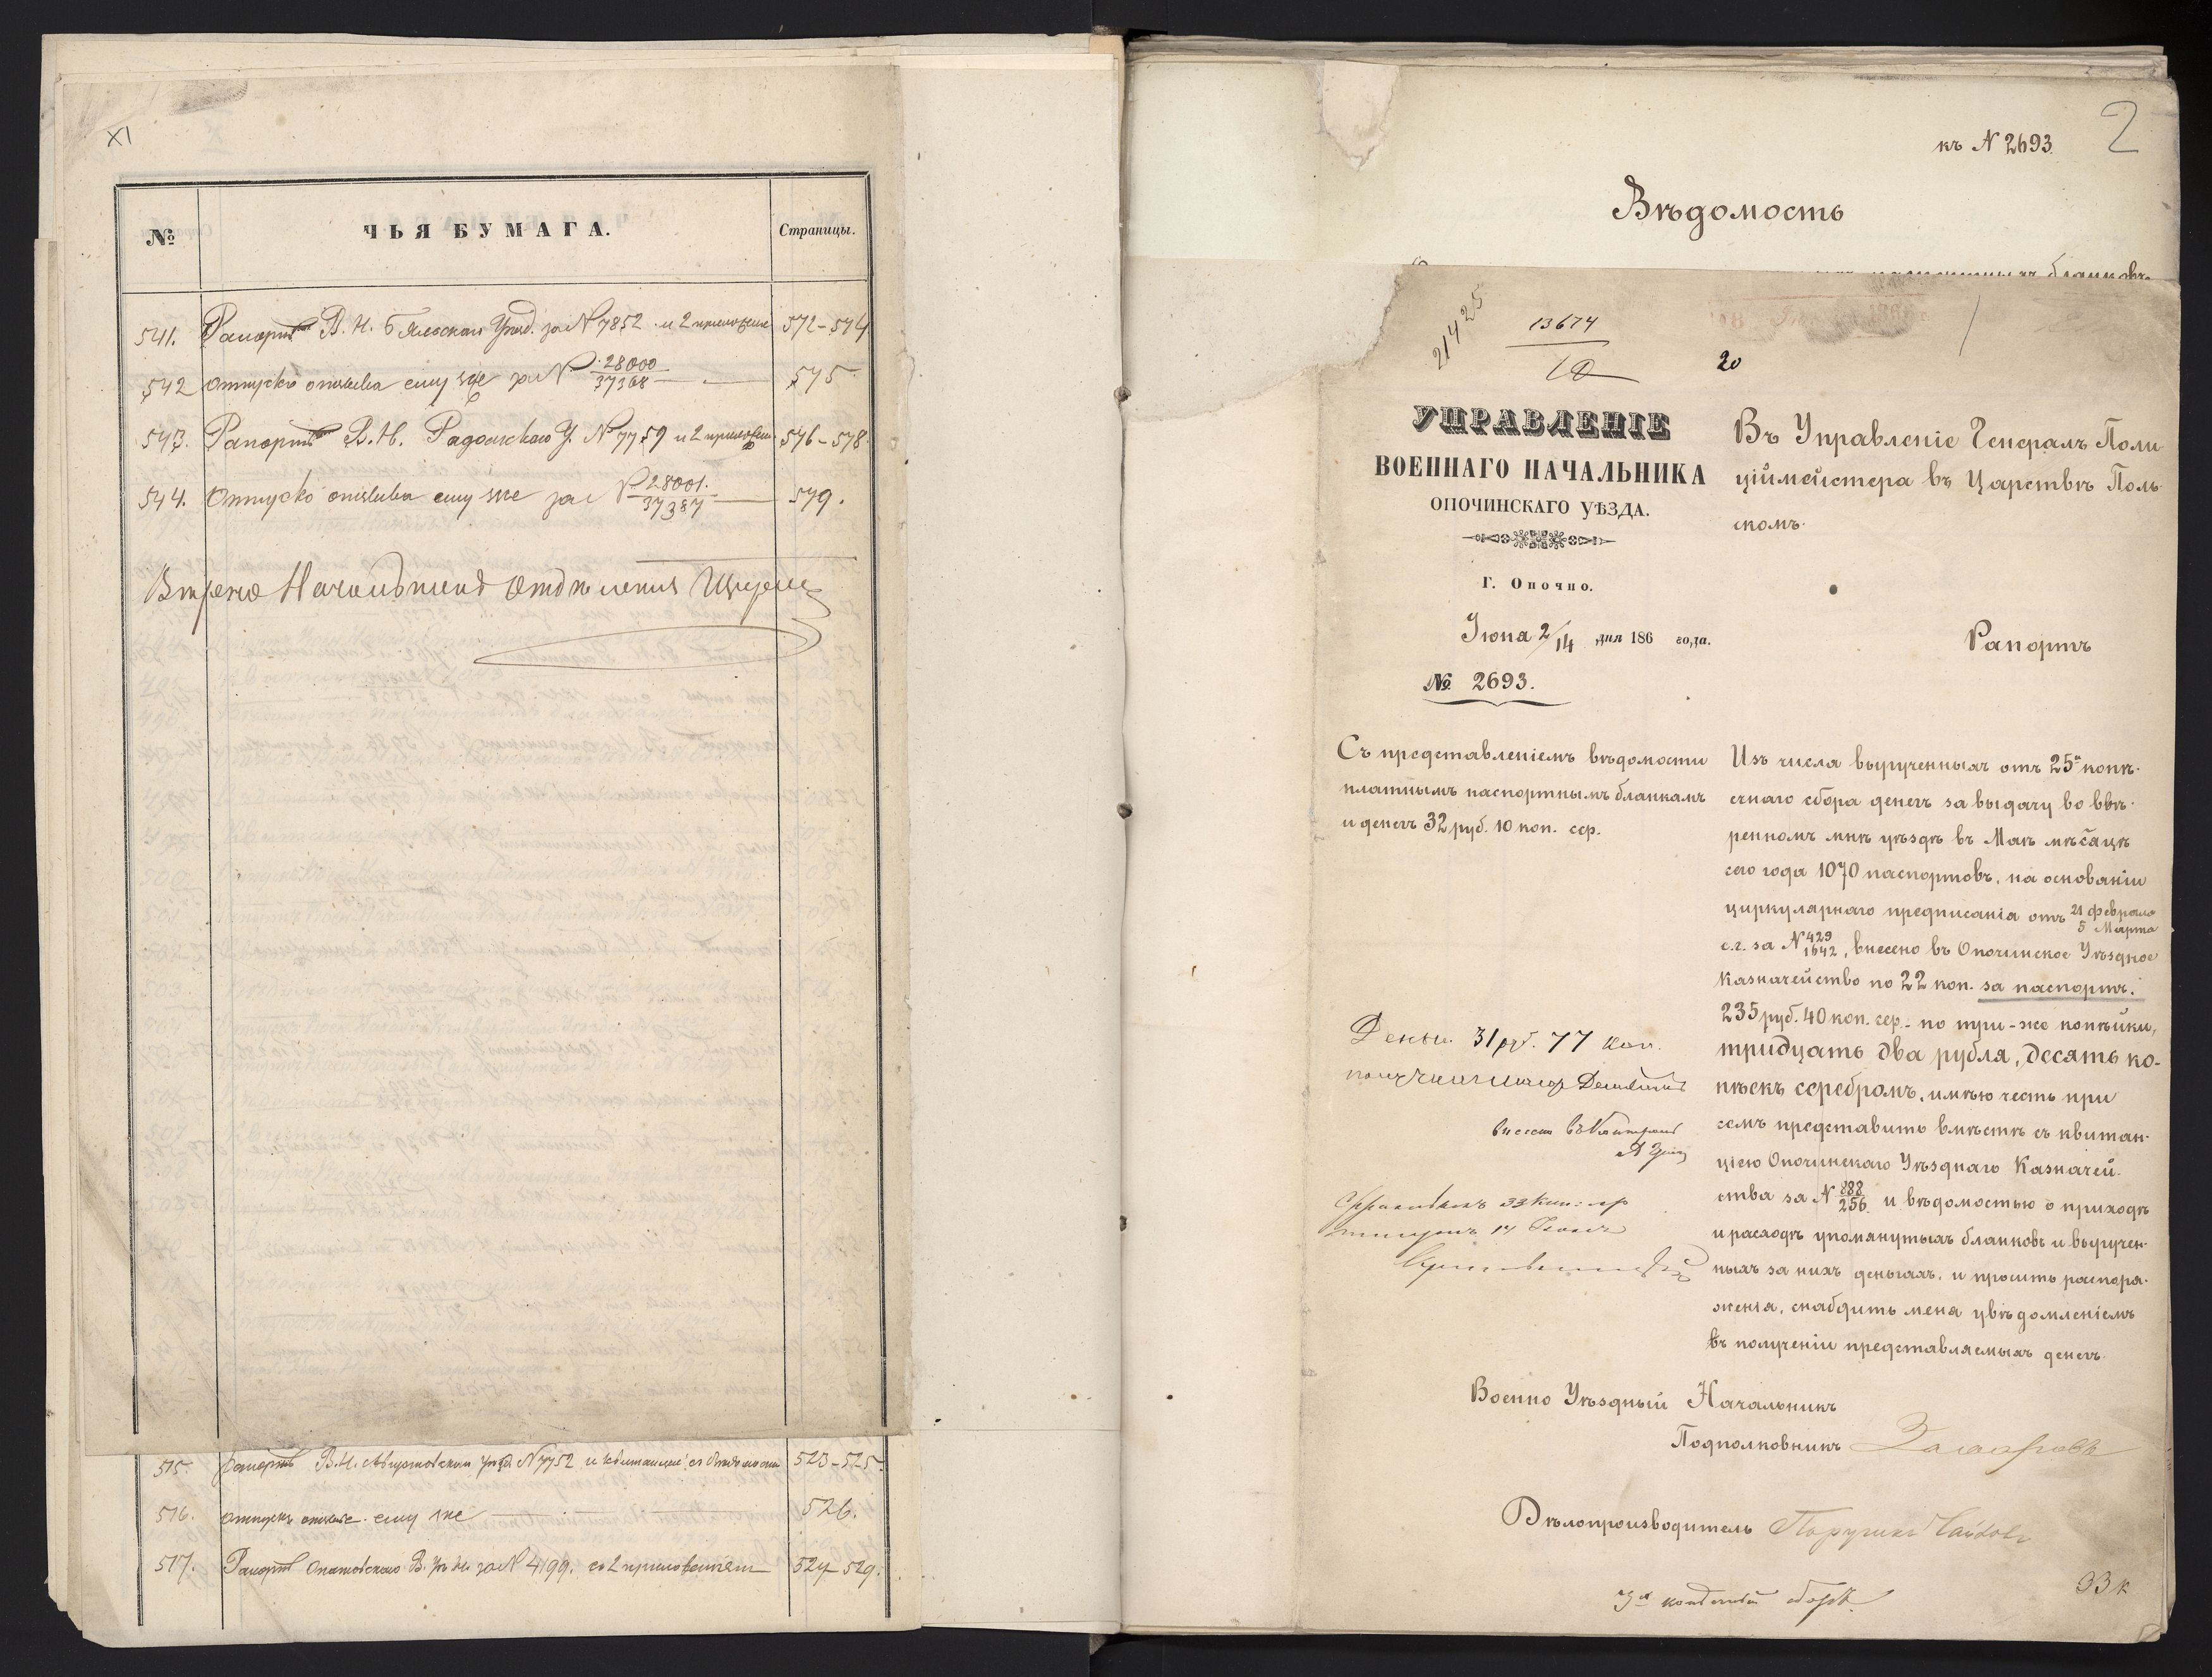 XI
№ ЧЬЯ БУМАГА. Страницы.
541. Рапортъ В. Н. Бяльскаго Уѣзд. за № 7852 и 2 приложен. 572-574
542 Отпускъ отзыва ему же за № 28000/37368 575
543. Рапортъ В. Н. Радомскаго У. № 7759 и 2 приложен. 576-578
544. Отпускъ отзыва ему же за № 28001./37387 579.
Начальника Отдѣленія
515. Рапортъ В. Н. Августовскаго Уѣзд. № 7752 и 523-525
516. Отпускъ ему же 526.
517. Рапортъ Опатовскаго В. Уѣ. Н. за № 4199. съ 2 приложеніям 527-529.
къ № 2693. 2
Вѣдомость
бланковъ
21425
13674
20
УПРАВЛЕНІЕ
ВОЕННАГО НАЧАЛЬНИКА
ОПОЧИНСКАГО УѢЗДА.
Г. Опочно.
Іюня 2/14 дня 186 года.
№ 2693.
Въ Управленіе Генералъ Поли
ціймейстера въ Царствѣ Поль-
скомъ.
Рапортъ
Съ представленіемъ вѣдомости
платнымъ паспортнымъ бланкамъ
и денегъ 32 руб. 10 коп. сер.
Изъ числа вырученныхъ отъ 25и копѣ-
ечнаго сбора денегъ за выдачу во ввѣ-
ренномъ мнѣ уѣздѣ въ Маѣ мѣсяцѣ
сего года 1070 паспортовъ, на основаніи
циркулярнаго предписанія отъ 21 Февраля/5 Марта
с.г. за № 429/1642, внесено въ Опочинское Уѣздное
Казначейство по 22 коп. за паспортъ.
235 руб. 40 коп. сер. - по три-же копѣйки,
тридцать два рубля, десять ко-
пѣекъ серебромъ, имѣю честь при
семъ представить вмѣстѣ съ квитан-
ціею Опочинскаго Уѣзднаго Казначей-
ства за № 888/256 и вѣдомостью о приходѣ
и расходѣ упомянутыхъ бланковъ и выручен-
ныхъ за нихъ деньгахъ, и просить распоря-
женія, снабдить меня увѣдомленіемъ
въ полученіи представляемыхъ денегъ.
Деньги 31 ру. 77 коп.
внесены въ
33 коп.
14
Военно Уѣздный Начальникъ
Подполковникъ
Дѣлопроизводитель Поручикъ
33 к
сборъ